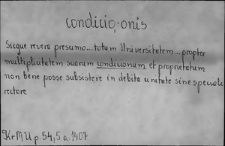 condicio,-onis
Sicque revera presumo...totam Universitatem...propter
multiplicitatem suarum condicionum et proprietatum
non bene posse subsistere in debita unitate sine speciali
rectore
KrMU p 54, 5 a. 1407